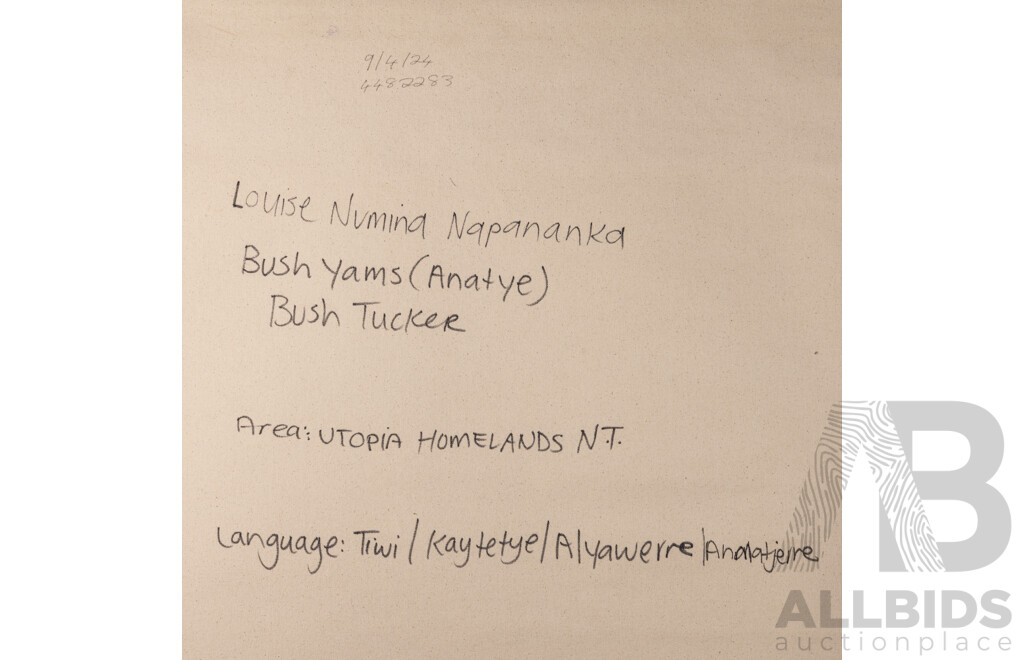 9/4/24
4482283
Louise Numina Napananka
Bush Yams (Anatye)
Bush Tucker
Area: UTOPIA HOMELANDS N.T.
Language: Tiwi / Kaytetye / Alyawerre / Anmatjerre
AB
ALLBIDS
auctionplace